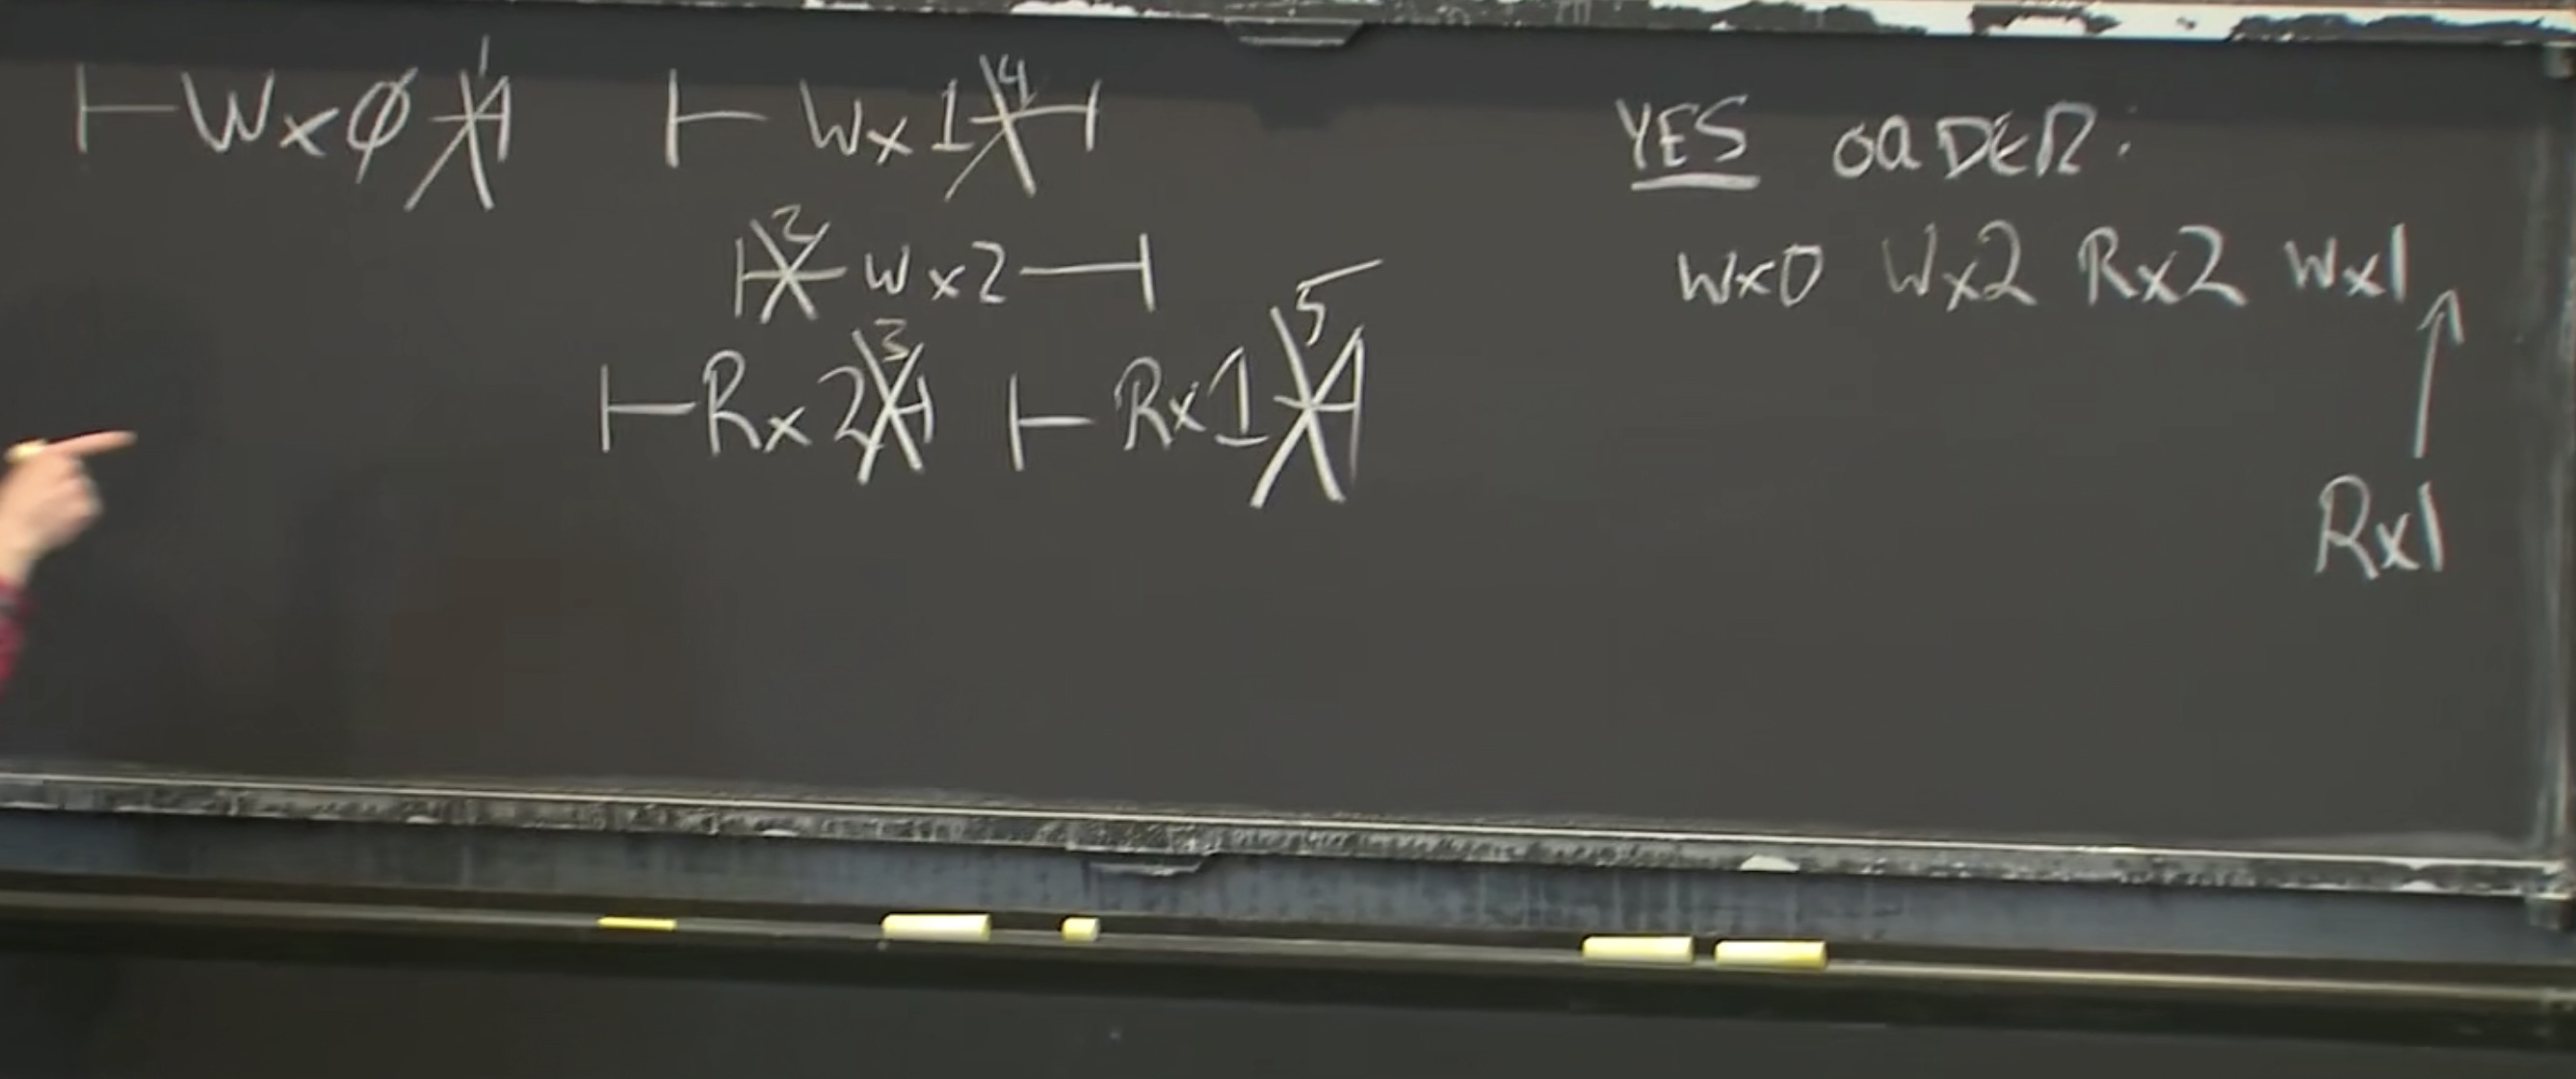 ⊢Wx0 1⊣ ⊢Wx1 4⊣
⊢2 Wx2⊣
⊢Rx2 3⊣ ⊢Rx1 5⊣
YES ORDER:
Wx0 Wx2 Rx2 Wx1
Rx1